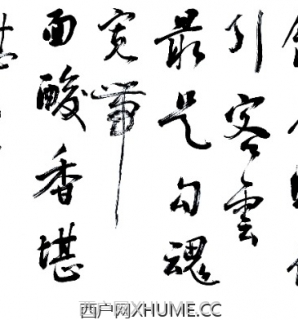 引客雲
最是勾魂
宽帶
面酸香堪
西户网XHUME.CC